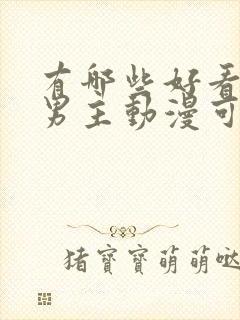 有哪些好看
男主動漫可
猪寶寶萌萌哒